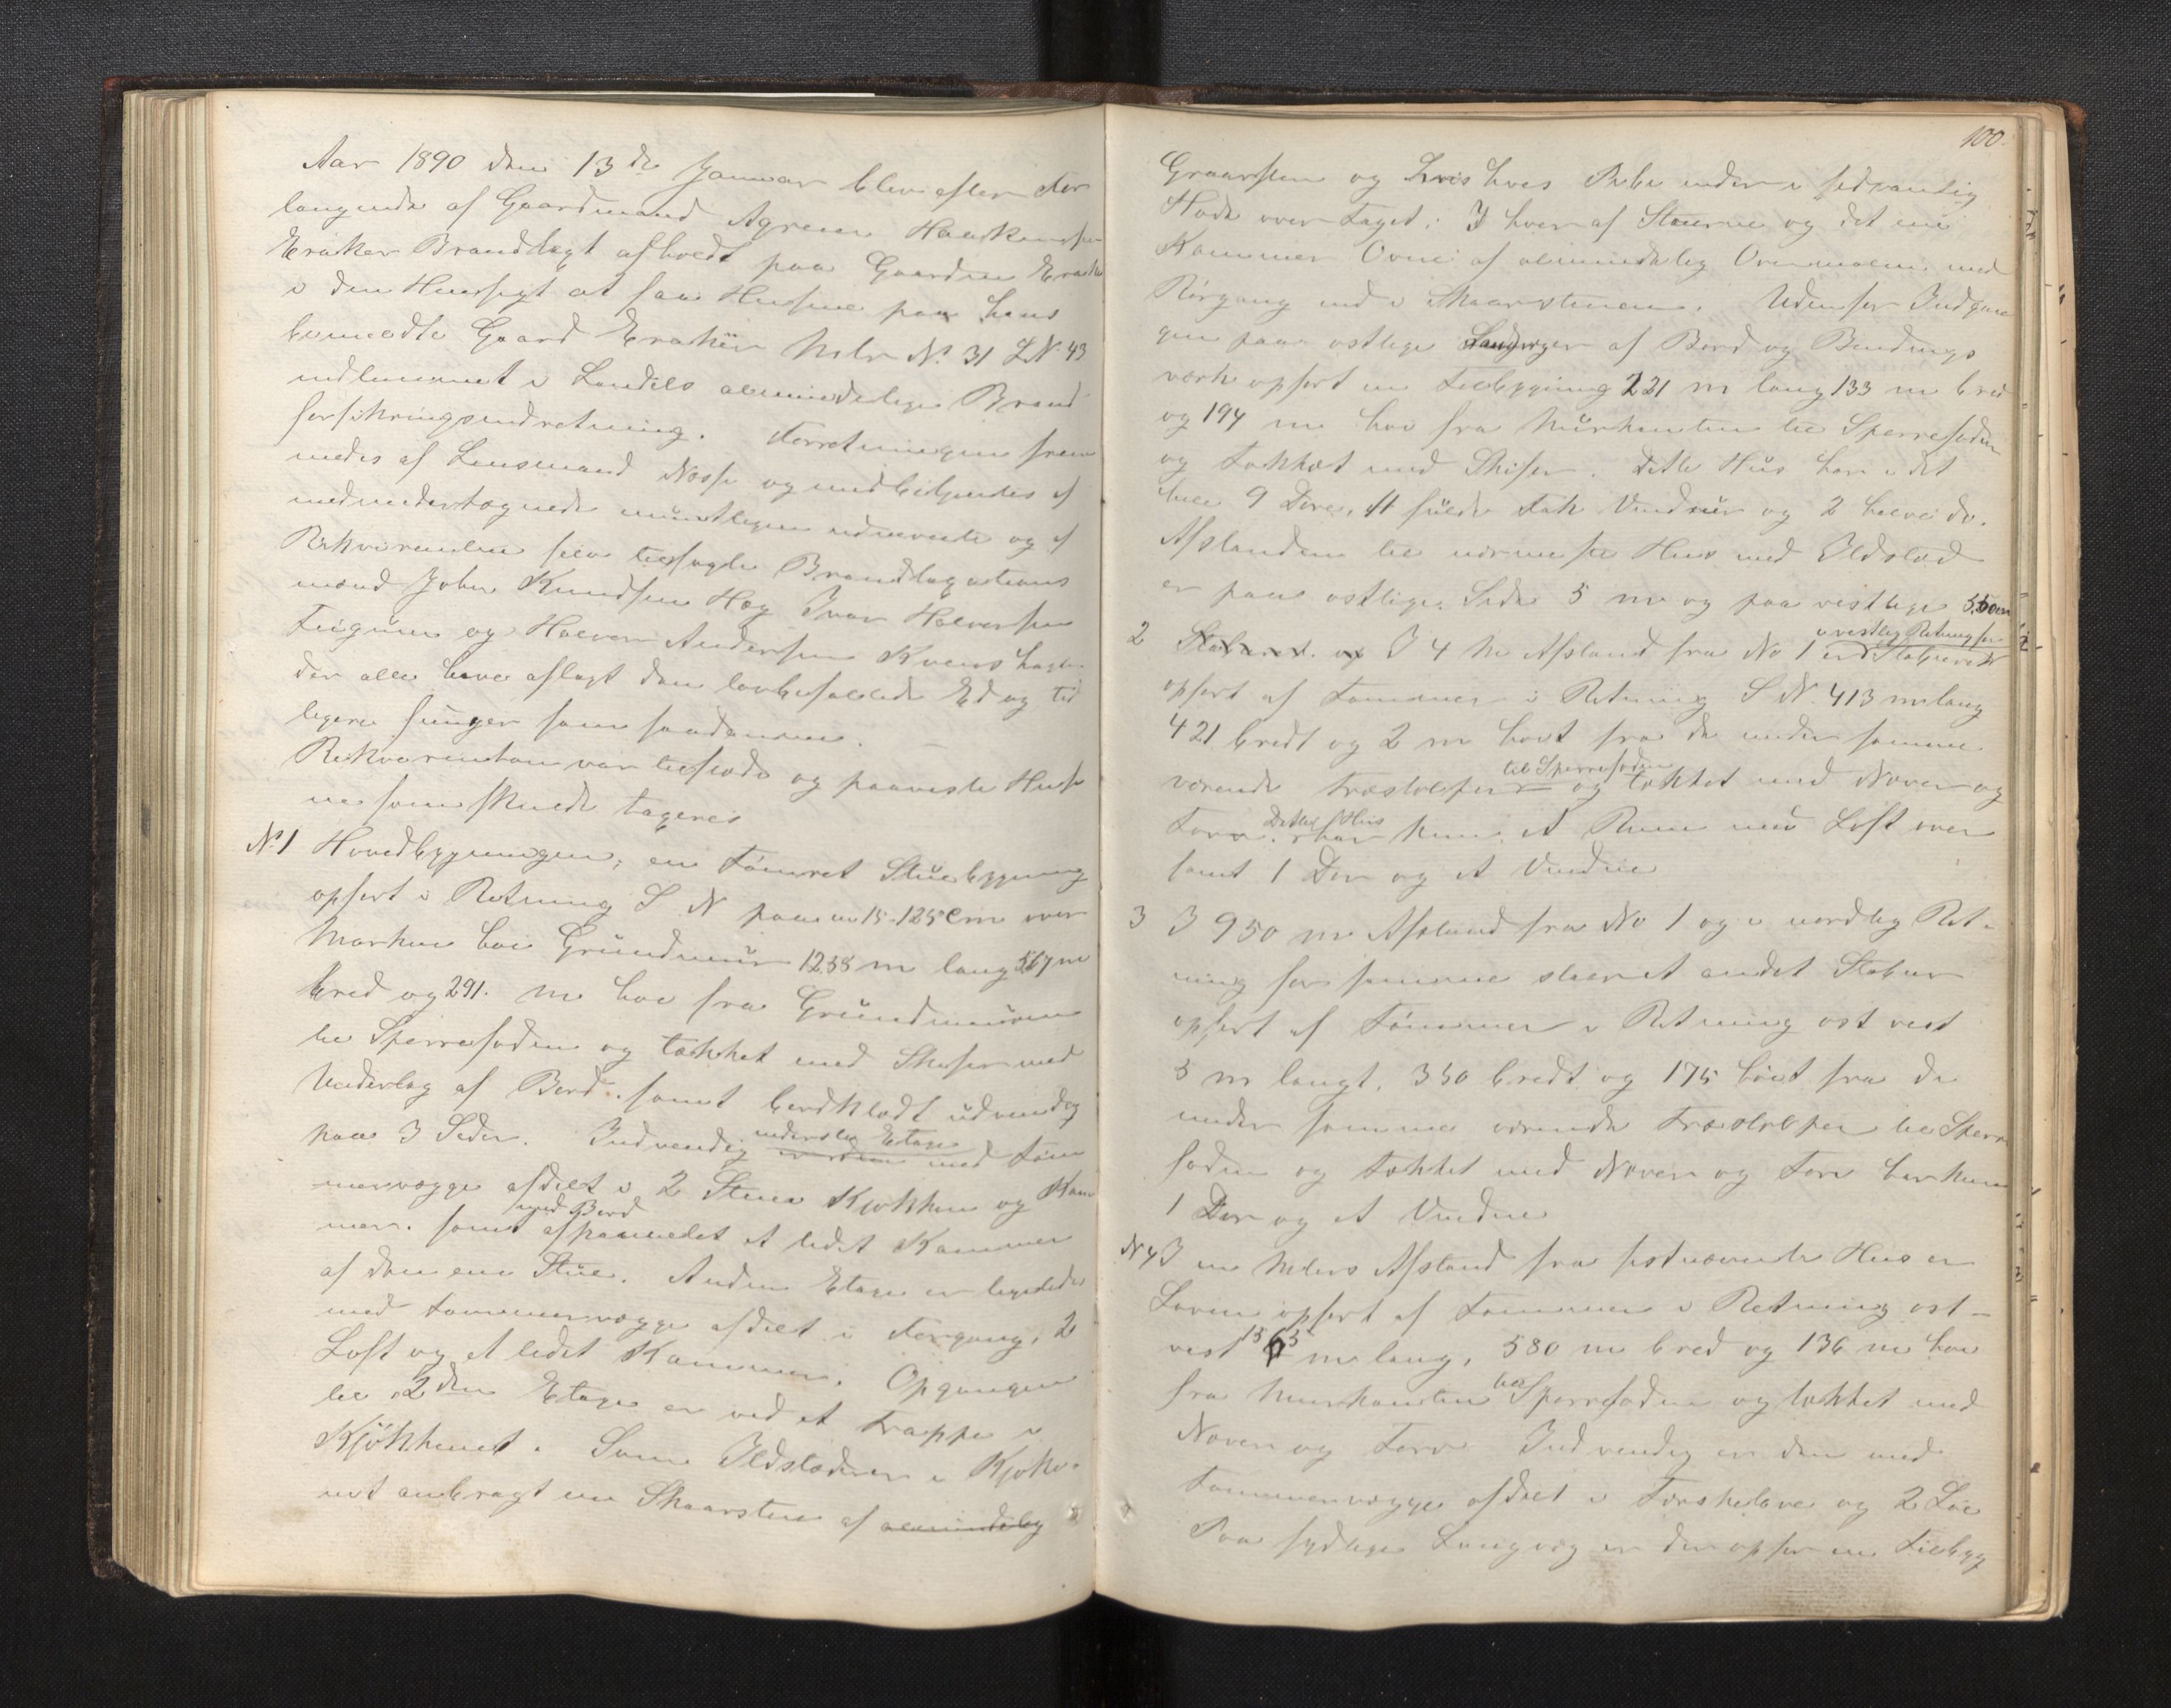 Aar 1890 den 13de Januar blev efter For
langende af Gaardmand Agrim Haakensen
Eraker Brandtagt afholdt paa Gaarden Eraker
i den Hensigt at faa Husene paa hans
bemeldte Gaard Eraker Mtr No. 31 L.N. 43
indlemmet i Landets almindelige Brand
forsikringsindretning. Forretningen frem
medes af Lensmand Nesse og medbetjentes af
medundertegnede mundtligen udnævnte og af
Rekvirenten selv tilsagte Brandtagstions
mænd John Knudsen Hæg Ivar Halvorsen
og Halvor Andersen Kvens
der alle have aflagt den lovbefalede Ed og tid
ligere funger som saadanne. —
Rekvirenten var tilstede og paaviste Huse
ne som skulde taxeres
No. 1 Hovedbygningen, en tømret Stuebygning
opført i Retning S N paa en 15-125 Cm over
Marken høi Grundmuur 1238 m lang 567 m
bred og 291. m høi fra Grundmuren
til Sperrefoden og tækket med Skifer med
Underlag af Bord. samt bordklædt udvendig
paa 3 Sider. Indvendig underste Etage med Tøm
mervægge afdelt i 2 Stuer Kjøkken og Kam
mer. samt med Bord afpanelet et lidet Kammer
af den ene Stue. Anden Etage er ligeledes
med Tømmervægge afdelt i Forgang, 2
Loft og et lidet Kammer. Opgangen
til 2den Etage er ved et Trappe i
Kjøkkenet. Som Ildsteder er i Kjøke
net anbragt en Skaarsten af almindelig
100.
Graasten og hvis Pibe ender i fedvanlig
Høide over Taget. I hver af Stuerne og det ene
Kammer Ovne af almindelig Ovnmalm med
Rørgang ind i Skaarstenen. Udenfor Indgan
gen paa østlige Langvæg er af Bord og Bindings
værk opført en Tilbygning 221 m lang 133 m bred
og 194 m høi fra Murkanten til Sperrefoden
og tækket med Skifer. Dette Hus har i det
hele 9 Døre, 11 fulde Fak Vinduer og 2 halve do.
Afstanden til nærmeste Hus med Ildsted
er paa østlige Side 5 m og paa vestlige 550 m
2 Staburet. og I 4 M Afstand fra No 1 i vestlig Retning for er Staburet
opført af Tømmer i Retning S N. 413 m lang
421 bredt og 2 m høit fra de under samme
værende Træstolper til Sperrefoden og tækket med Never og
Torv. Dette Hus har kun et Rum med Loft over
samt 1 Dør og et Vindue
3 I 950 m Afstand fra No 1 og i nordlig Ret-
ning for samme staar et andet Stabur
opført af Tømmer i Retning ost vest
5 m langt. 350 bredt og 175 høit fra de
under samme værende Træstolper til Sperre
foden og tækket med Never og Torv har kun
1 Dør og et Vindue
N 4 I en Meters Afstand fra sidstnævnte Hus er
Laven opført af Tømmer i Retning ost-
vest 1565 m lang, 580 m bred og 136 m høi
fra Murkanten til Sperrefoden og tækket med
Never og Torv Indvendig er den med
Tømmervægge afdelt i Tærskelave og 2 Løe
Paa sydlige Langvæg er der opført en Tilbyg